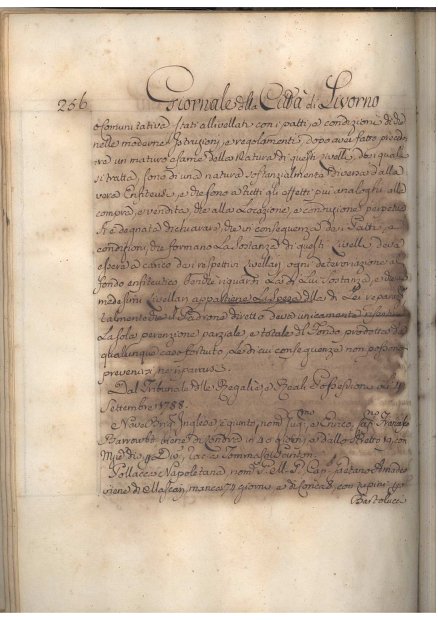 256 Giornale della Città di Livorno
o Comunitativa stati allivellati con i patti, e condizioni di che
nelle moderne Istruzioni, e regolamenti, dopo aver fatto prece
un maturo esame della Natura di questi Livelli, de quali
si tratta, sono di una natura sostanzialmente diversa dalla
vera Enfiteusi, e che sono diretti gli effetti più analoghi alla
compra, e vendita, che alla Locazione, e conduzione perpetua
si è degnata dichiarare, che in conseguenza dei Patti, e
condizioni, che formano La Sostanza di questi Livelli deva
essere a carico dei respettivi Livellari ogni deteriorazione al
fondo enfiteutico benché riguardi La di Lui sostanza, e che ai
medesimi Livellari appartiene La spesa della di Lei repara
talmente che il Padrone diretto deva unicamente
La sola perenzione parziale e totale di Fondo prodotta da
qualunque caso fortuito, Le di cui conseguenze non possono
prevenirsi, ne ripararsi.
Dal Tribunale delle Regalie, e Reali Possessioni li 4
Settembre 1788.
e Nave Brig.º Inglese e quinto, nom.
viene di Londra in 40 giorni e dallo Stretto 19, con
racc. a Tommaso
Pollacca Napoletana nom. Cap. Gaetano Amadeo
viene di manca 74 giorni e di con
Bartolucci